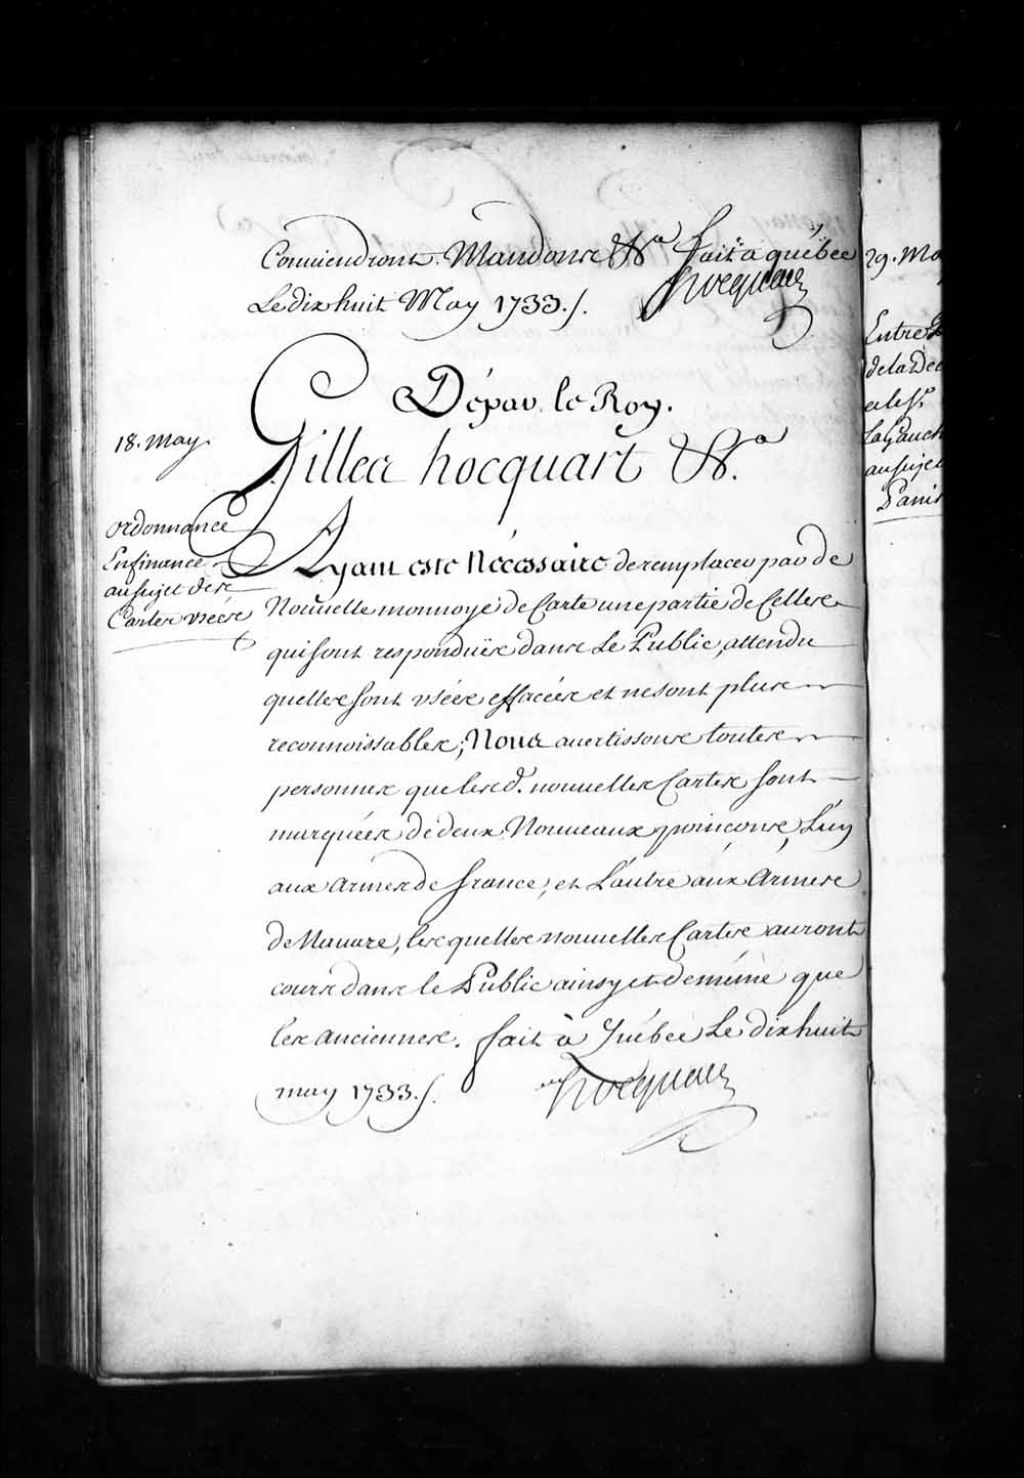 Conviendront. Mandons &a fait a québec
Le dix huit May 1733./.
Hocquart
De par le Roy.
18. May.
Gilles hocquart &a.
ordonnance
En finance
au sujet des
Cartes usées
Ayant esté Nécessaire de remplacer par de
Nouvelle monnoye de Carte une partie de Celles
qui sont responduës dans Le Public, attendu
quelles sont usées effacées et ne sont plus
reconnoissables; Nous avertissons toutes
personnes que lesd. nouvelles Cartes sont
marquées de deux Nouveaux poinçons, L'un
aux armes de france, et L'autre aux Armes
de Navare, lesquelles nouvelles Cartes auront
cours dans le Public ainsy et de même que
les anciennes. fait à Québec Le dix huit
may 1733./.
Hocquart
29. Ma
Entre
de la De
et le Sr.
La Gauch
au sujet
Panis